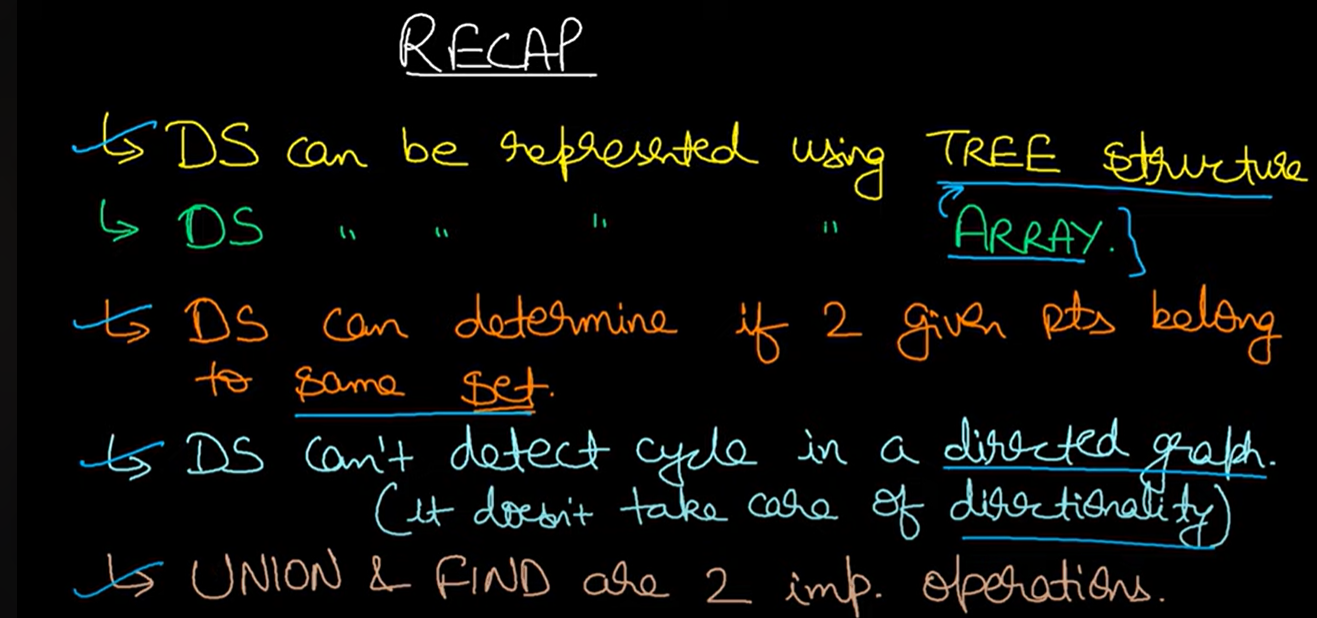 RECAP
↳ DS can be represented using TREE structure
↳ DS " " " " ARRAY.}
↳ DS can determine if 2 given pts belong
to same set.
↳ DS can't detect cycle in a directed graph.
(it doesn't take care of directionality)
↳ UNION & FIND are 2 imp. operations.